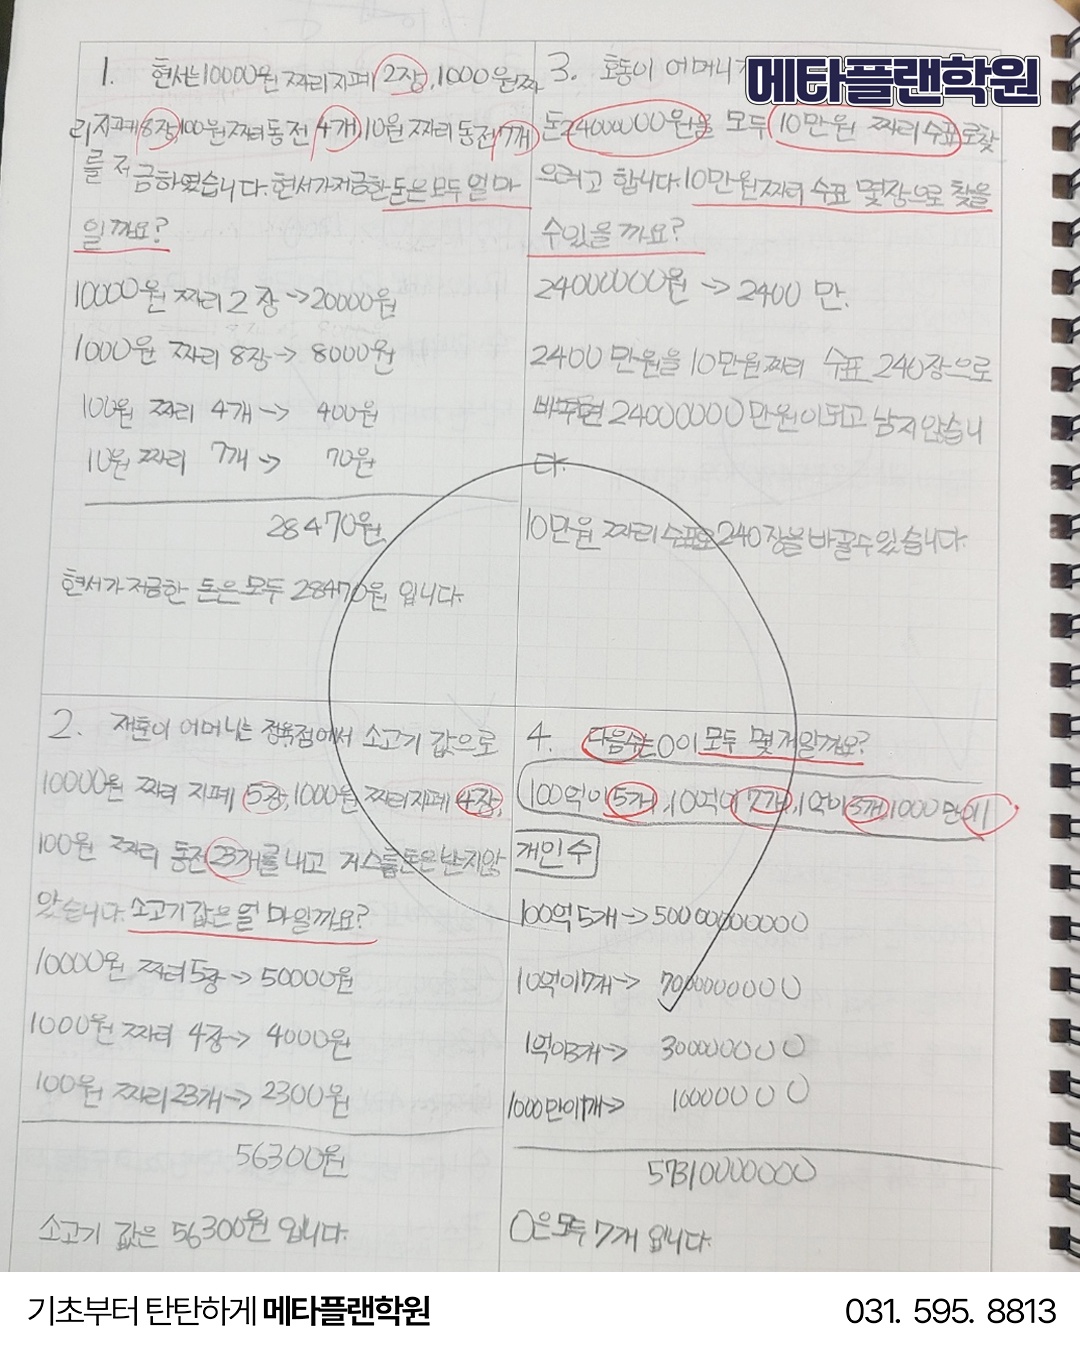 메타플랜학원
1. 현서는 10000원 짜리 지폐 2장, 1000원 짜
리 지폐 8장, 100원 짜리 동전 4개, 10원 짜리 동전 7개
를 저금하였습니다. 현서가 저금한 돈은 모두 얼마
일까요?
10000원 짜리 2장 → 20000원
1000원 짜리 8장 → 8000원
100원 짜리 4개 → 400원
10원 짜리 7개 → 70원
28470원
현서가 저금한 돈은 모두 28470원 입니다.
2. 재훈이 어머니는 정육점에서 소고기 값으로
10000원 짜리 지폐 5장, 1000원 짜리 지폐 4장,
100원 짜리 동전 23개를 내고 거스름돈은 받지 않
았습니다. 소고기 값은 얼마일까요?
10000원 짜리 5장 → 50000원
1000원 짜리 4장 → 4000원
100원 짜리 23개 → 2300원
56300원
소고기 값은 56300원 입니다.
3. 호동이 어머니가
돈 24000000원을 모두 10만원 짜리 수표로 찾
으려고 합니다. 10만원 짜리 수표 몇장으로 찾을
수 있을까요?
24000000원 → 2400만.
2400만원을 10만원 짜리 수표 240장으로
바꾸면 24000000만원이 되고 남지 않습니
다.
10만원 짜리 수표로 240장을 바꿀 수 있습니다.
4. 다음 수는 0이 모두 몇 개일까요?
100억이 5개, 10억이 7개, 1억이 3개, 1000만이 1
개인 수
100억 5개 → 50000000000
10억이 7개 → 7000000000
1억이 3개 → 300000000
1000만이 1개 → 10000000
57310000000
0은 모두 7개 입니다.
기초부터 탄탄하게 메타플랜학원
031. 595. 8813